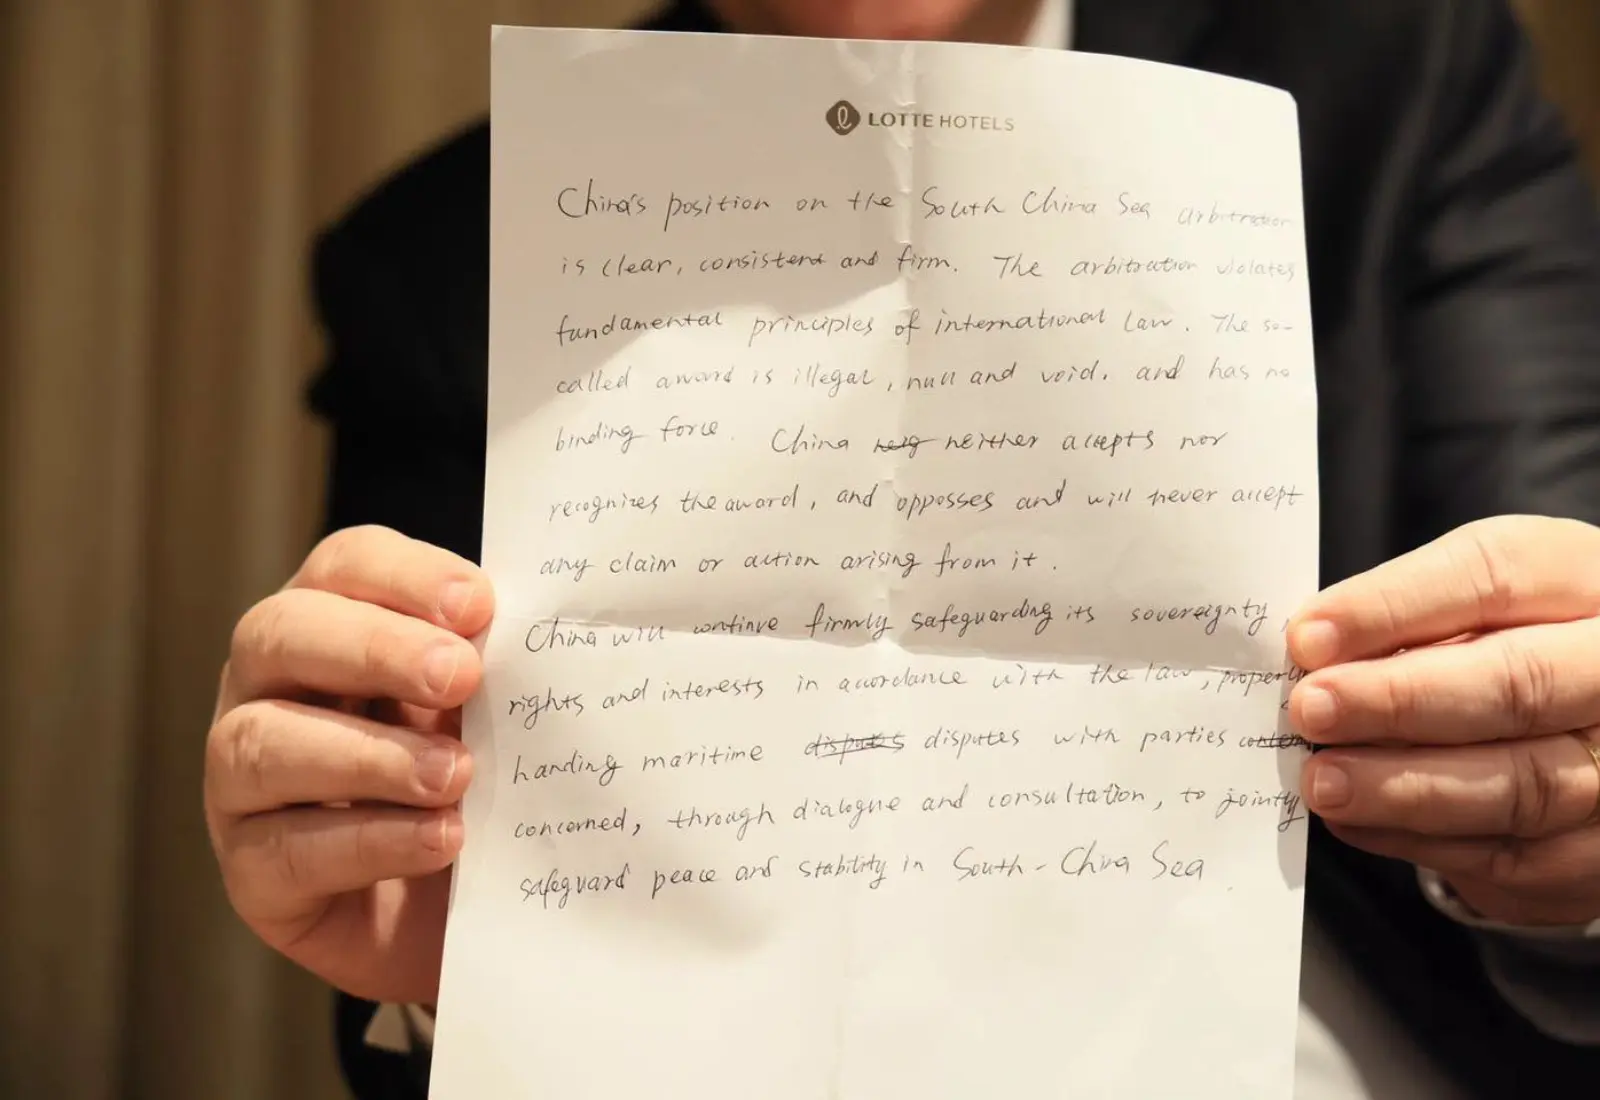 LOTTE HOTELS
China's position on the South China Sea arbitration
is clear, consistent and firm. The arbitration violates
fundamental principles of international law. The so-
called award is illegal, null and void. and has no
binding force. China neither accepts nor
recognizes the award, and opposses and will never accept
any claim or action arising from it.
China will continue firmly safeguarding its sovereignty
rights and interests in accordance with the law, properly
handing maritime disputes disputes with parties
concerned, through dialogue and consultation, to jointly
safeguard peace and stability in South-China Sea